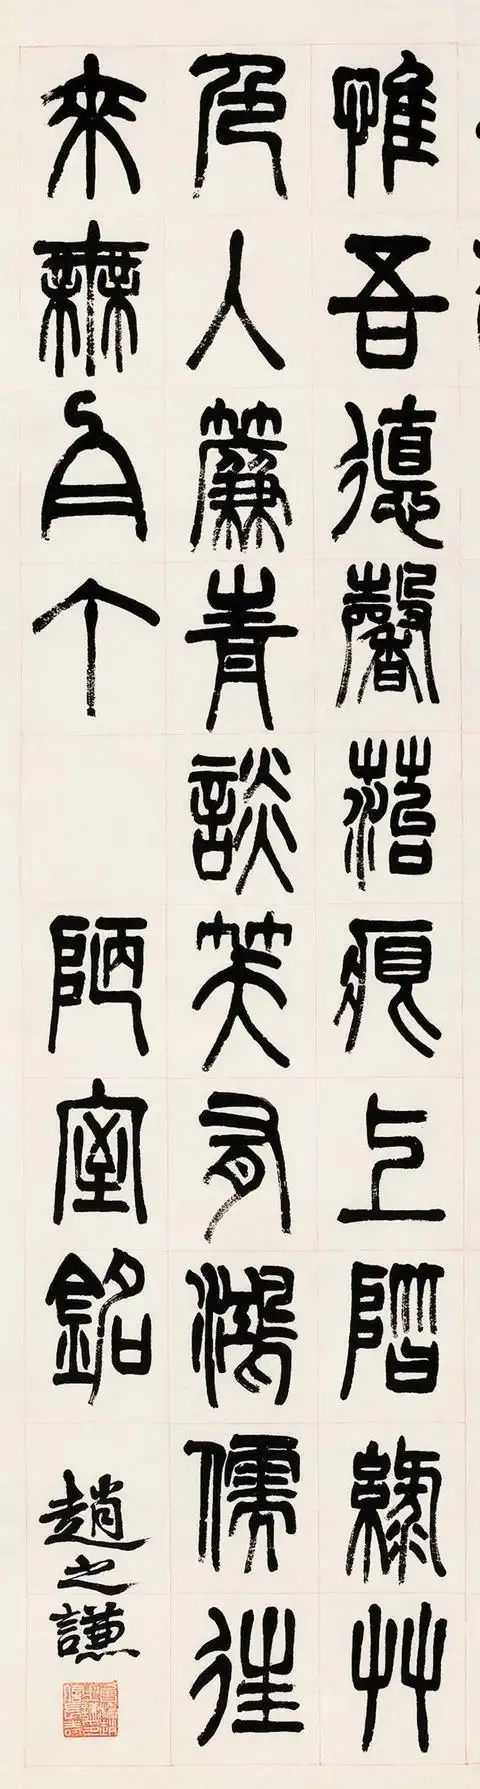 惟吾德馨菭痕上階綠艸
色人簾青談笑有鴻儒往
來無白丁
陋室銘
趙之謙